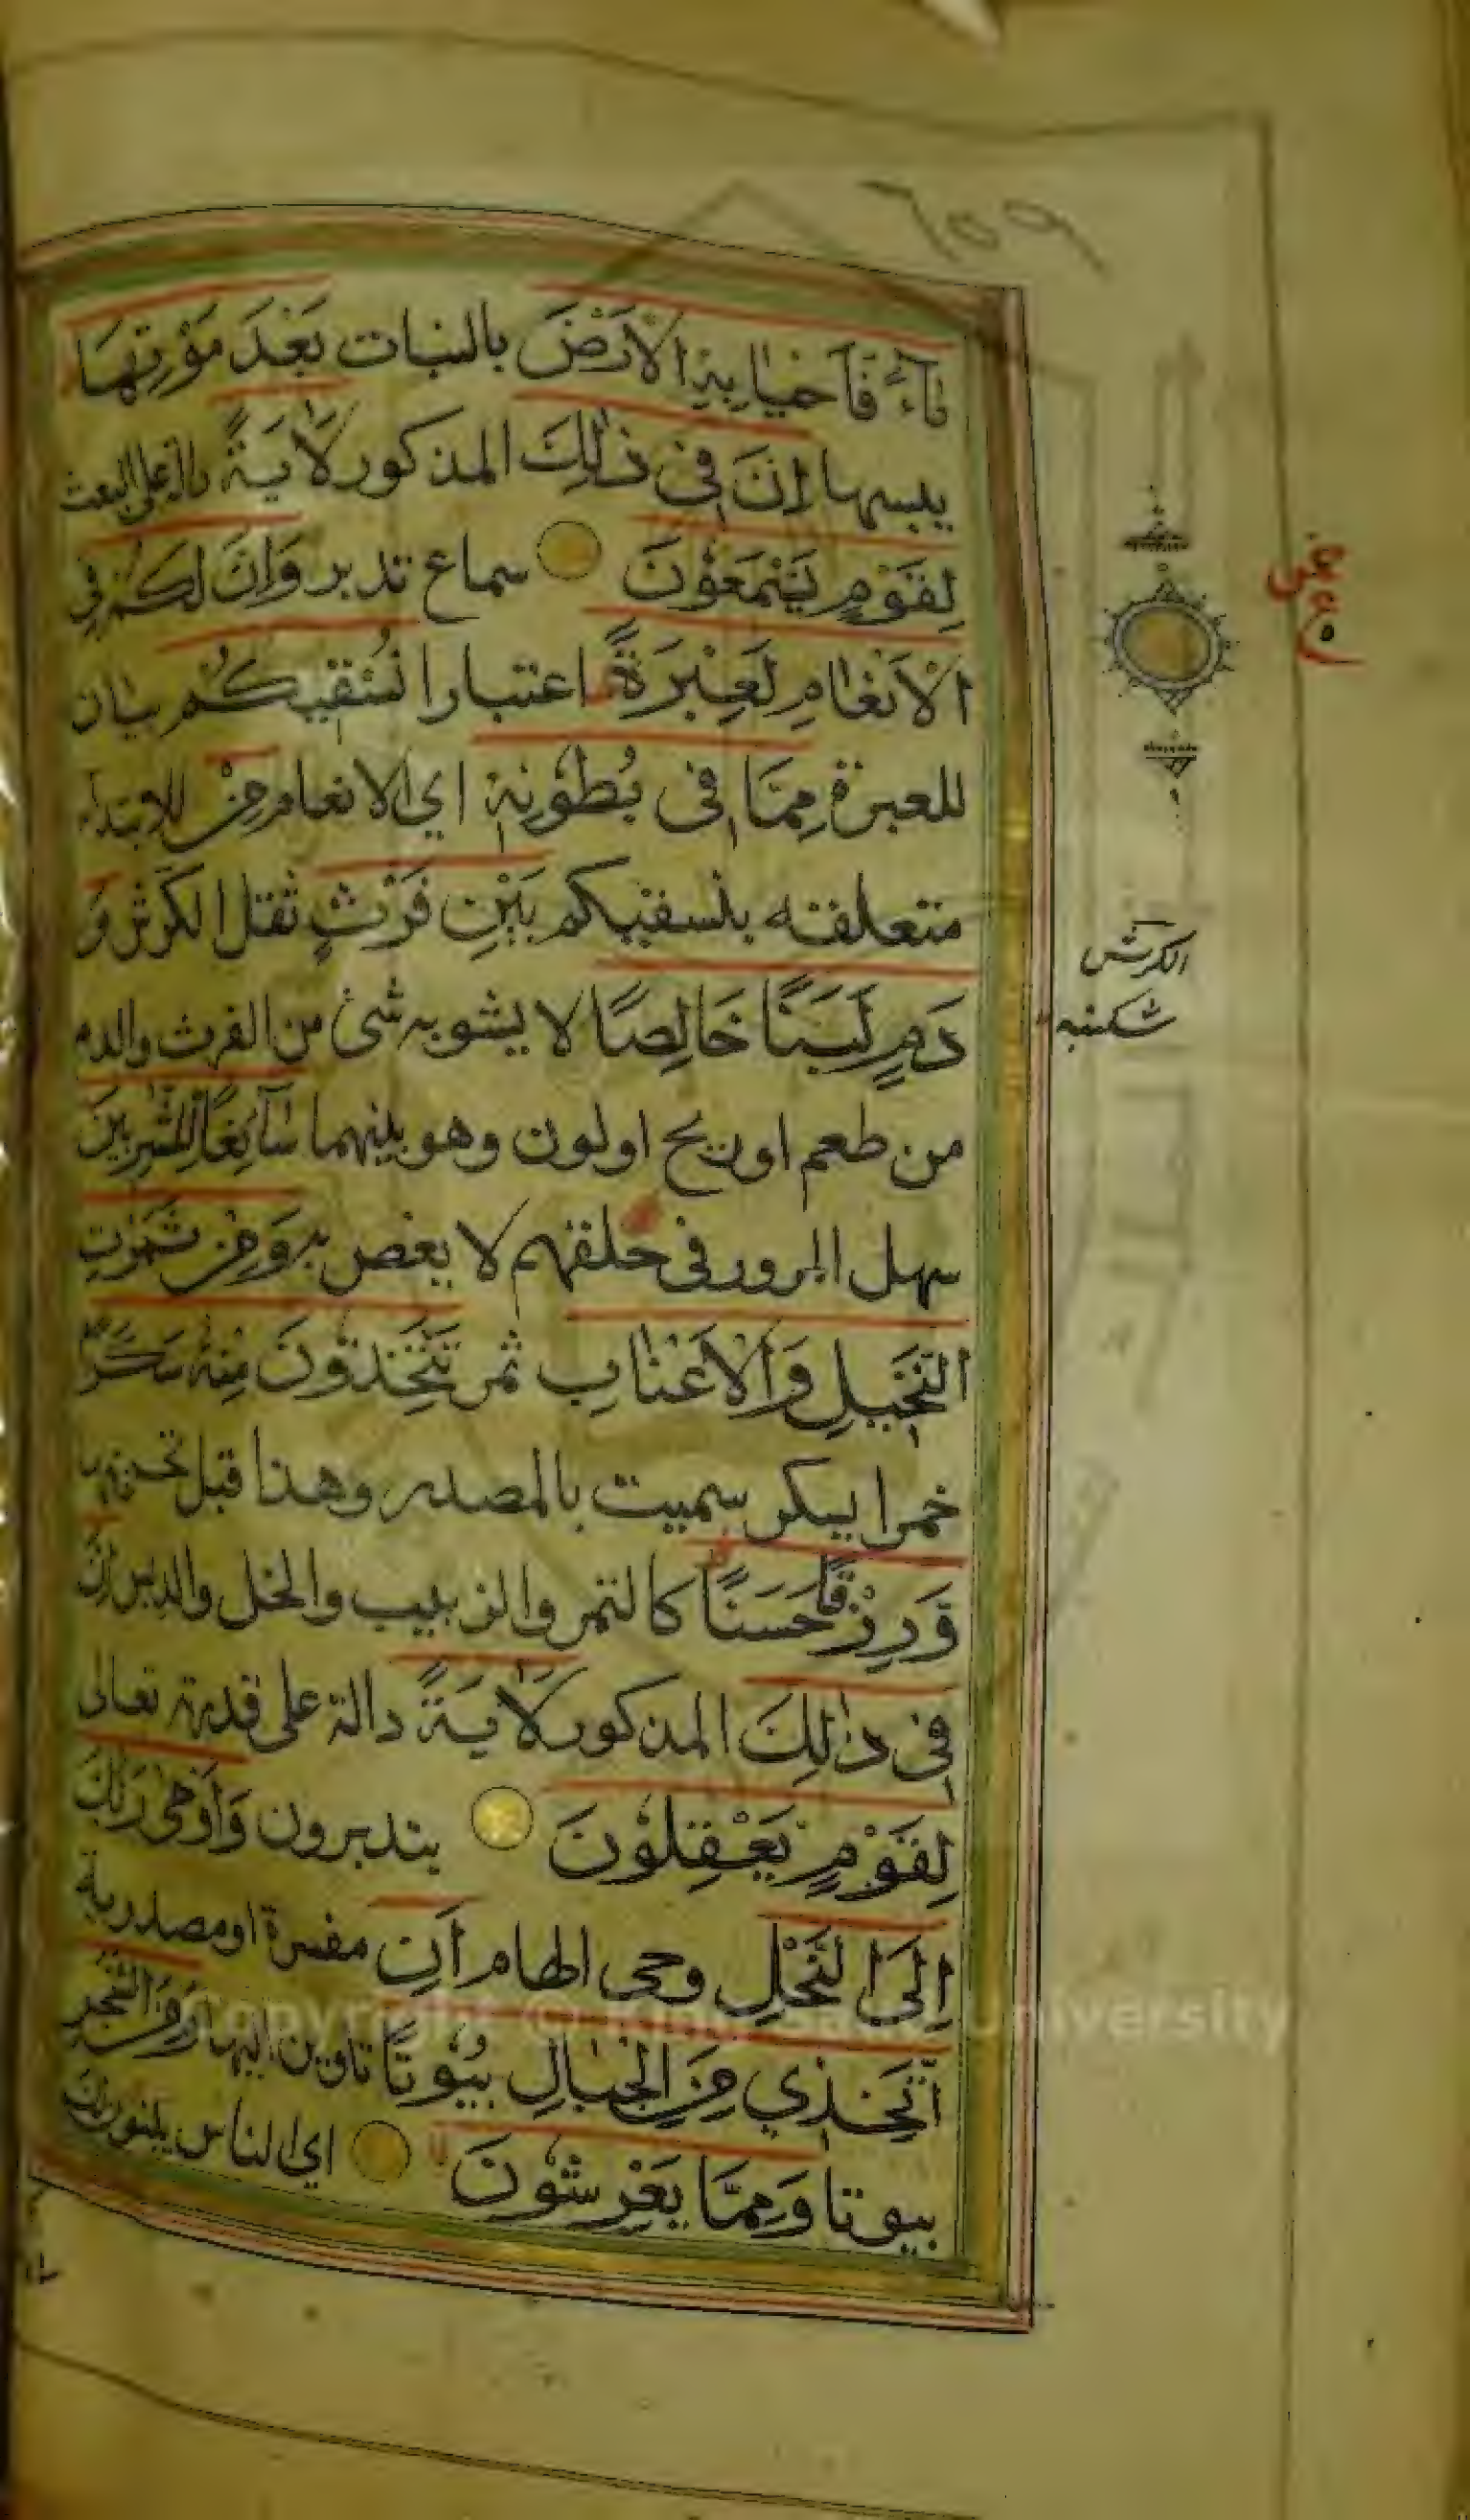 ٢٥٩
مَآءً فَاَحْيَا بِهِ الْاَرْضَ بالنبات بَعْدَ مَوْتِهَا
يبسها اِنَّ فِى ذٰلِكَ المذكور لَاٰيَةً دالة على البعث
لِقَوْمٍ يَسْمَعُوْنَ سماع تدبر وَاِنَّ لَكُمْ فِى
الْاَنْعَامِ لَعِبْرَةً اعتبارا نُسْقِيْكُمْ بيان
للعبرة مِمَّا فِى بُطُوْنِهٖ اي الانعام مِنْ للابتداء
متعلقة بنسقيكم بَيْنِ فَرْثٍ ثقل الكرش وَ
دَمٍ لَبَنًا خَالِصًا لا يشوبه شئ من الفرث والدم
من طعم اوريح اولون وهو بينهما سَآئِغًا لِلشّٰرِبِيْنَ
سهل المرور فى حلقهم لا يغص به وَمِنْ ثَمَرٰتِ
النَّخِيْلِ وَالْاَعْنَابِ ثمر تَتَّخِذُوْنَ مِنْهُ سَكَرًا
خمرا يسكر سميت بالمصدر وهذا قبل تحريمها
وَّرِزْقًا حَسَنًا كالتمر والزبيب والخل والدبس اِنَّ
فِى ذٰلِكَ المذكور لَاٰيَةً دالة على قدرته تعالى
لِقَوْمٍ يَعْقِلُوْنَ يتدبرون وَاَوْحٰى رَبُّكَ
اِلَى النَّحْلِ وحى الهام اَنِ مفسرة او مصدرية
اتَّخِذِي مِنَ الْجِبَالِ بُيُوْتًا تاوين اليها وَمِنَ الشَّجَرِ
بيوتا وَمِمَّا يَعْرِشُوْنَ اي الناس يبنون لك
الكرش
شكنبه
Copyright © King Saud University